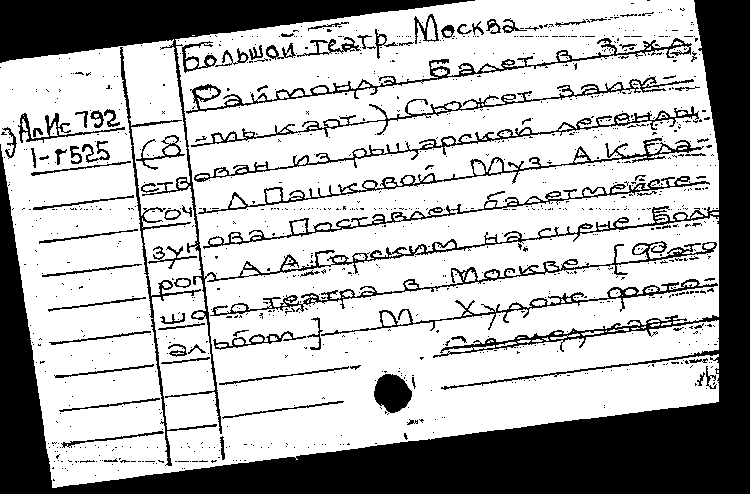 Большой театр Москва
Э АлИс 792
1-г525
Раймонда. Балет в 3-х д.
(8 -мь карт.). Сюжет заим-
ствован из рыцарской легенды.
Соч. Л. Пашковой. Муз. А.К. Гла-
зунова. Поставлен балетмейсте-
ром А.А. Горским на сцене Боль
шого театра в Москве. [Фото
альбом]. М., Худож. фото-
См. след. карт.